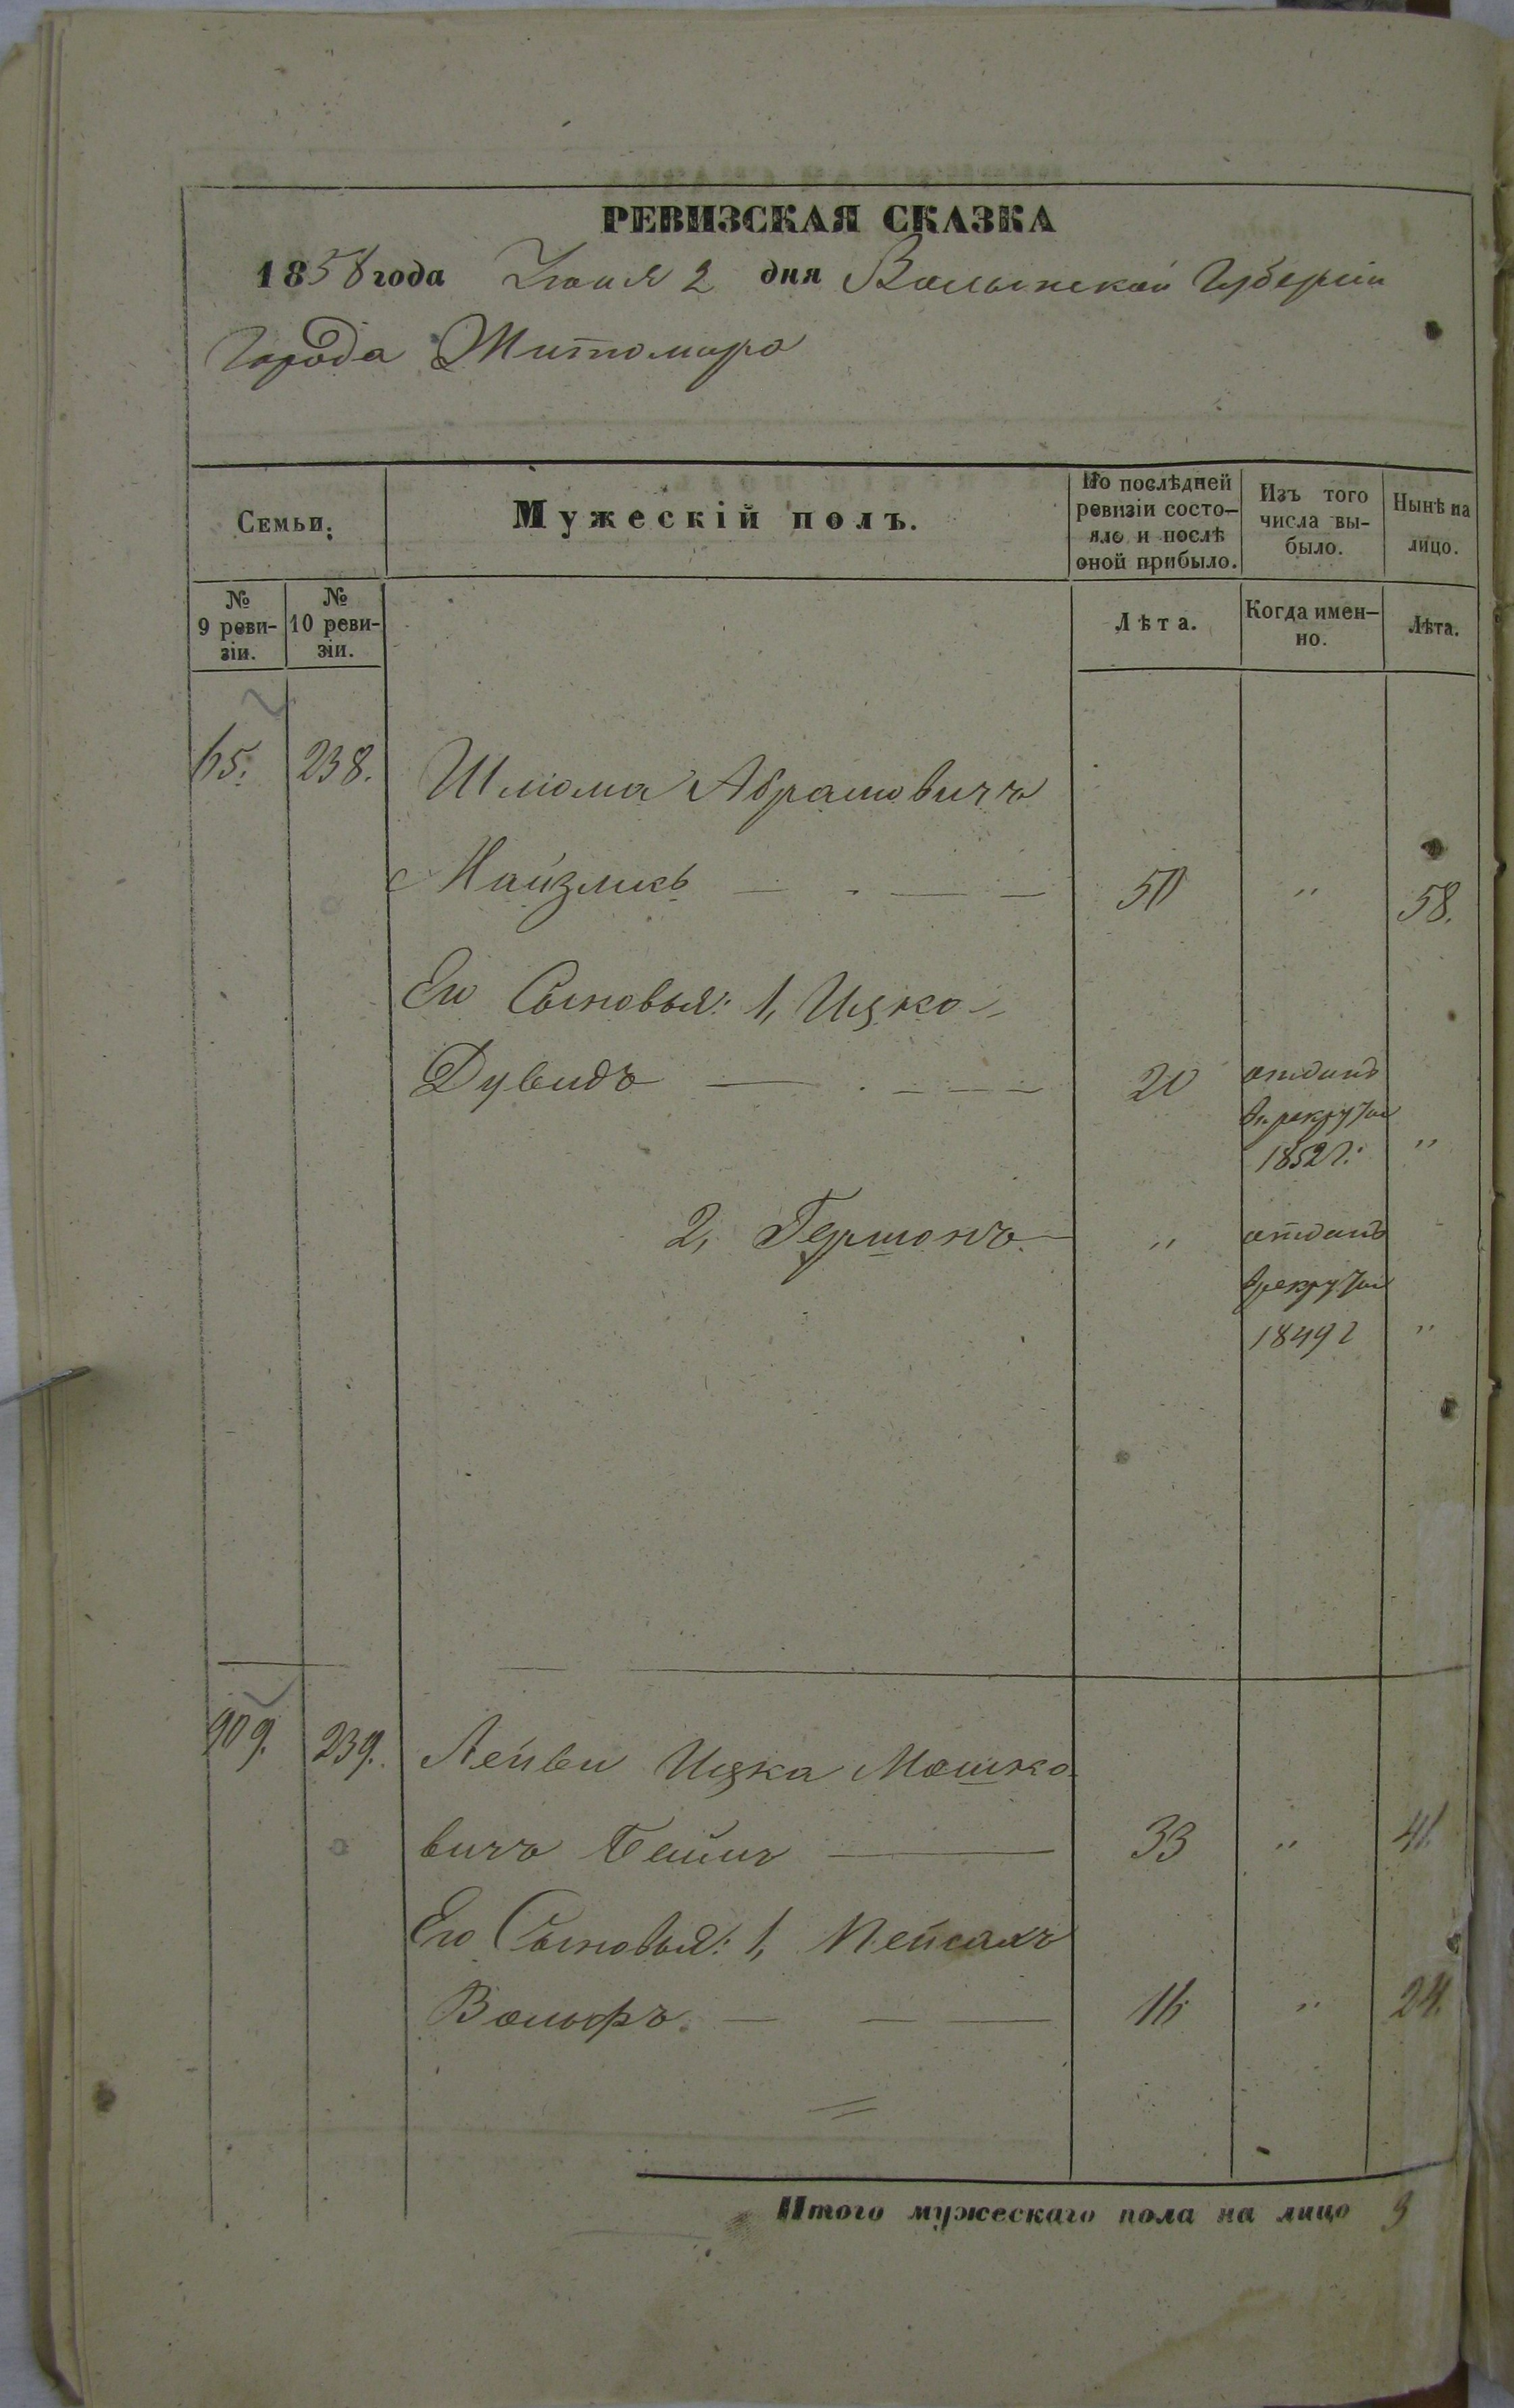 РЕВИЗСКАЯ СКАЗКА
1858 года Іюня 2 дня Волынской Губерніи
Города Житомира
Семьи.
Мужескій полъ.
По послѣдней ревизіи состояло и послѣ оной прибыло.
Изъ того числа выбыло.
Нынѣ на лицо.
№ 9 ревизіи.
№ 10 ревизіи.
Лѣта.
Когда именно.
Лѣта.
65. 238. Шліома Абрамовичъ
Найзлисъ 50 " 58.
Его Сыновья: 1, Ицко
Дувидъ 20 отданъ
въ рекруты
1852 г: "
2, Гершонъ " отданъ
в рекруты
1849 г "
909. 239. Лейви Ицка Мошко
вичъ 33 " 41.
Его Сыновья: 1, Пейсахъ
Вольфъ 16 " 24.
Итого мужескаго пола на лицо 3